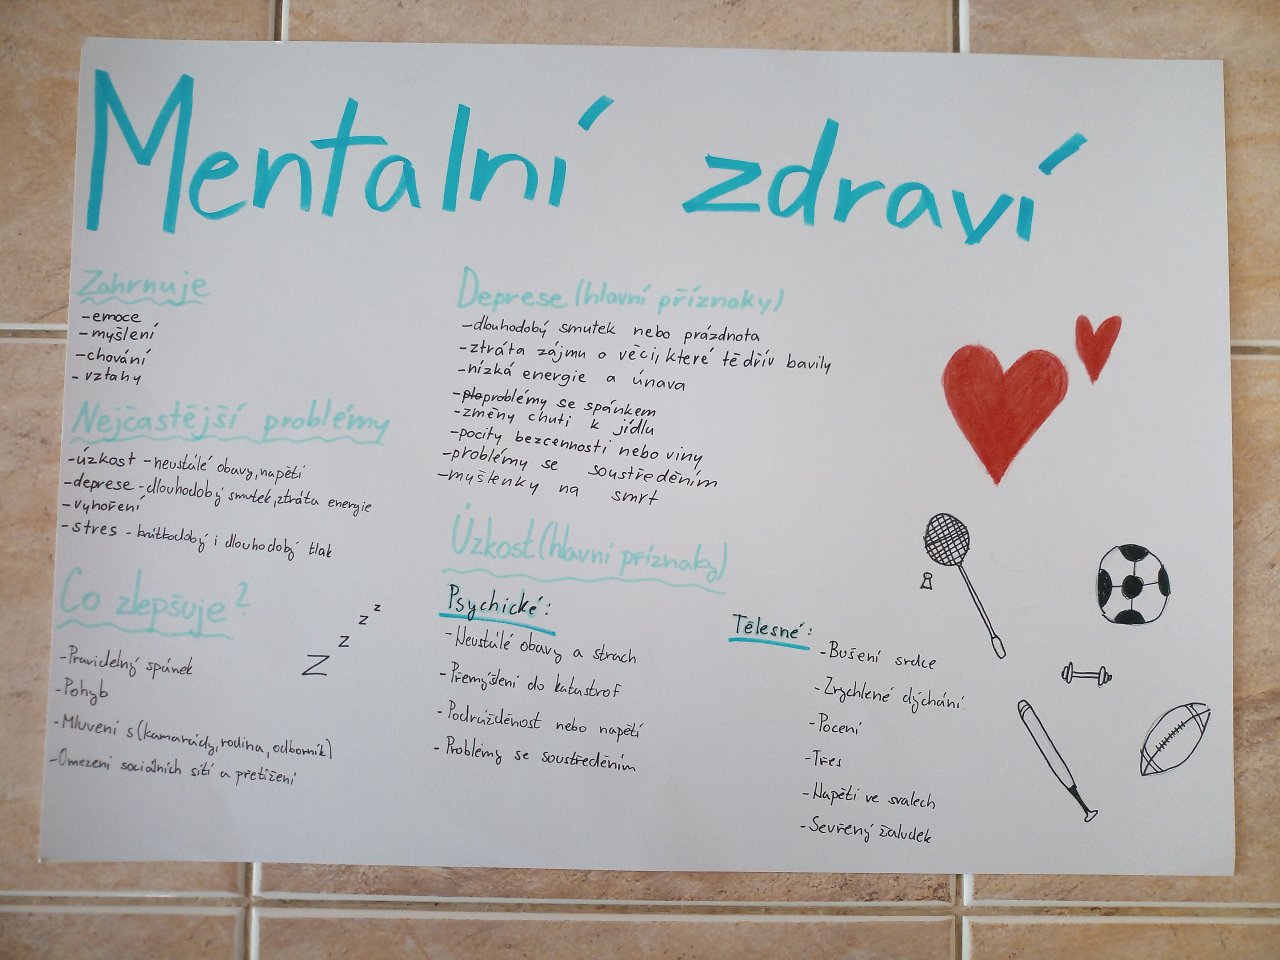 Mentalní zdraví
Zahrnuje
-emoce
-myšlení
-chování
-vztahy
Nejčastější problémy
-úzkost -neustálé obavy,napětí
-deprese -dlouhodobý smutek,ztráta energie
-vyhoření
-stres -krátkodobý i dlouhodobý tlak
Co zlepšuje?
-Pravidelný spánek
-Pohyb
-Mluvení s(kamarády,rodina,odborník)
-Omezení sociálních sítí a přetížení
z
z
z
Z
Deprese(hlavní příznaky)
-dlouhodobý smutek nebo prázdnota
-ztráta zájmu o věci,které tě dřív bavily
-nízká energie a únava
-problémy se spánkem
-změny chuti k jídlu
-pocity bezcennosti nebo viny
-problémy se soustředěním
-myšlenky na smrt
Úzkost(hlavní příznaky)
Psychické:
-Neustálé obavy a strach
-Přemýšlení do katastrof
-Podrážděnost nebo napětí
-Problémy se soustředěním
Tělesné:
-Bušení srdce
-Zrychlené dýchání
-Pocení
-Třes
-Napětí ve svalech
-Sevřený žaludek